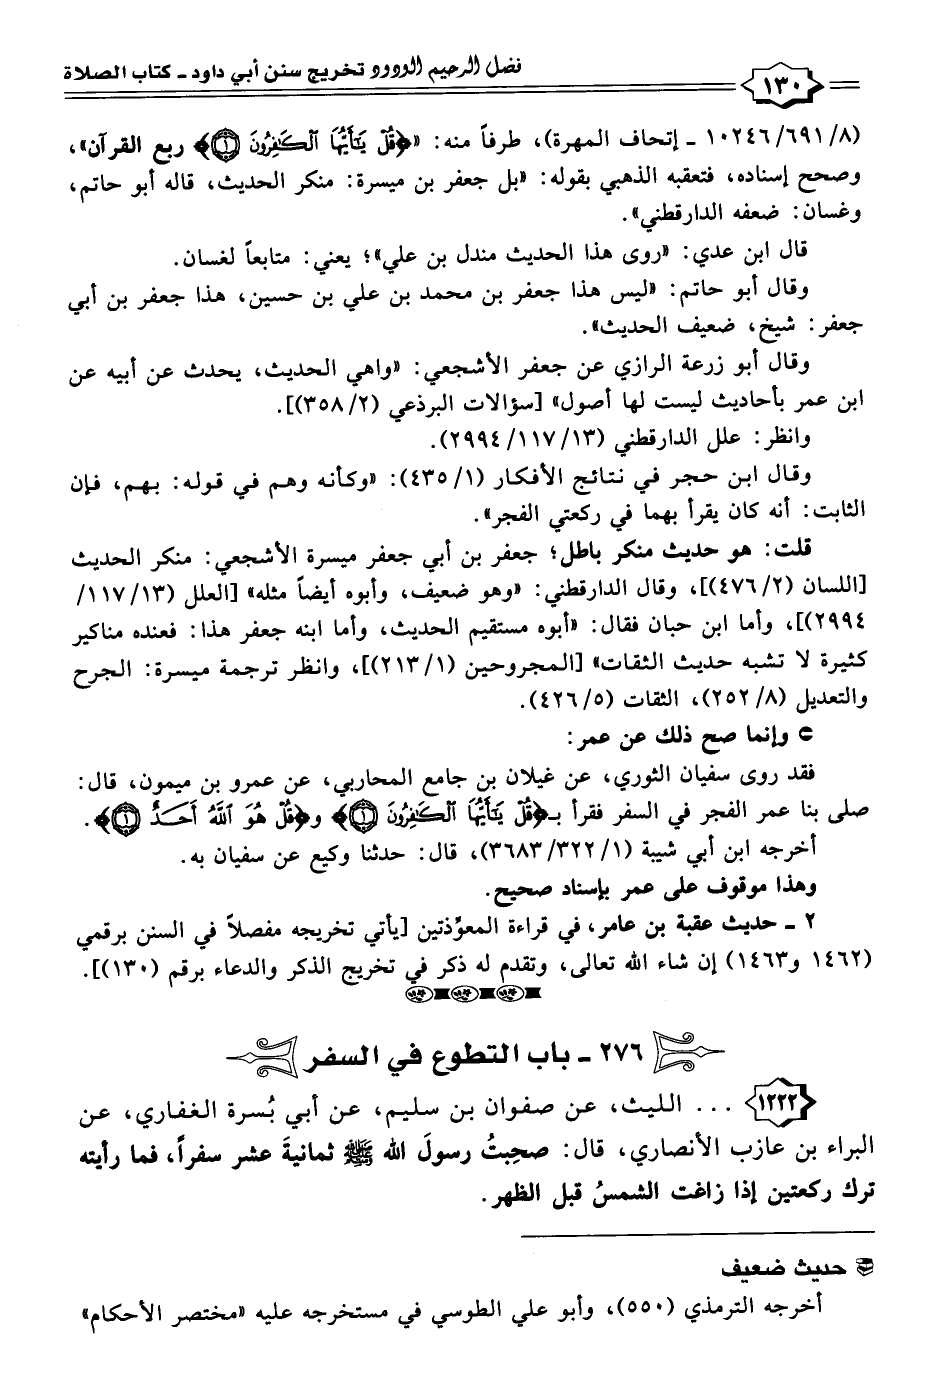 فضل الرحيم الودود تخريج سنن أبي داود - كتاب الصلاة
١٣٠
(١٠٢٤٦/٦٩١/٨ - إتحاف المهرة)، طرفاً منه: «﴿قُلْ يَٰٓأَيُّهَا ٱلْكَٰفِرُونَ ۝١﴾ ربع القرآن»،
وصحح إسناده، فتعقبه الذهبي بقوله: «بل جعفر بن ميسرة: منكر الحديث، قاله أبو حاتم،
وغسان: ضعفه الدارقطني».
قال ابن عدي: «روى هذا الحديث مندل بن علي»؛ يعني: متابعاً لغسان.
وقال أبو حاتم: «ليس هذا جعفر بن محمد بن علي بن حسين، هذا جعفر بن أبي
جعفر: شيخ، ضعيف الحديث».
وقال أبو زرعة الرازي عن جعفر الأشجعي: «واهي الحديث، يحدث عن أبيه عن
ابن عمر بأحاديث ليست لها أصول» [سؤالات البرذعي (٣٥٨/٢)].
وانظر: علل الدارقطني (٢٩٩٤/١١٧/١٣).
وقال ابن حجر في نتائج الأفكار (٤٣٥/١): «وكأنه وهم في قوله: بهم، فإن
الثابت: أنه كان يقرأ بهما في ركعتي الفجر».
قلت: هو حديث منكر باطل؛ جعفر بن أبي جعفر ميسرة الأشجعي: منكر الحديث
[اللسان (٤٧٦/٢)]، وقال الدارقطني: «وهو ضعيف، وأبوه أيضاً مثله» [العلل (١١٧/١٣/
٢٩٩٤)]، وأما ابن حبان فقال: «أبوه مستقيم الحديث، وأما ابنه جعفر هذا: فعنده مناكير
كثيرة لا تشبه حديث الثقات» [المجروحين (٢١٣/١)]، وانظر ترجمة ميسرة: الجرح
والتعديل (٢٥٢/٨)، الثقات (٤٢٦/٥).
وإنما صح ذلك عن عمر:
فقد روى سفيان الثوري، عن غيلان بن جامع المحاربي، عن عمرو بن ميمون، قال:
صلى بنا عمر الفجر في السفر فقرأ بـ﴿قُلْ يَٰٓأَيُّهَا ٱلْكَٰفِرُونَ ۝١﴾ و﴿قُلْ هُوَ ٱللَّهُ أَحَدٌ ۝١﴾.
أخرجه ابن أبي شيبة (٣٦٨٣/٣٢٢/١)، قال: حدثنا وكيع عن سفيان به.
وهذا موقوف على عمر بإسناد صحيح.
٢ - حديث عقبة بن عامر، في قراءة المعوِّذتين [يأتي تخريجه مفصلاً في السنن برقمي
(١٤٦٢ و١٤٦٣) إن شاء الله تعالى، وتقدم له ذكر في تخريج الذكر والدعاء برقم (١٣٠)].
٢٧٦ - باب التطوع في السفر
١٢٢٢ ... الليث، عن صفوان بن سليم، عن أبي بُسرة الغفاري، عن
البراء بن عازب الأنصاري، قال: صحِبتُ رسولَ الله ﷺ ثمانيةَ عشر سفراً، فما رأيته
ترك ركعتين إذا زاغت الشمسُ قبل الظهر.
حديث ضعيف
أخرجه الترمذي (٥٥٠)، وأبو علي الطوسي في مستخرجه عليه «مختصر الأحكام»